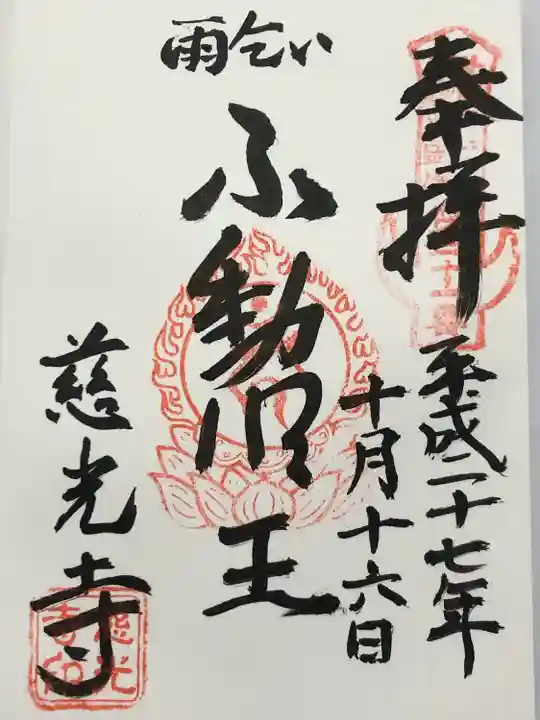 奉拝
平成二十七年
十月十六日
雨乞い
不動明王
慈光寺
慈光